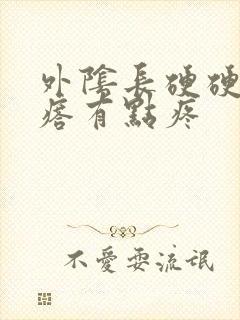 外陰長硬硬
痞有點疼
不愛耍流氓